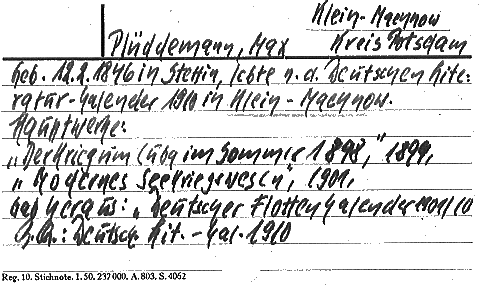 Klein-Machnow
Plüddemann, Max Kreis Potsdam
Geb. 12.2.1846 in Stettin, lebte n. d. Deutschen Lite-
ratur-Kalender 1910 in Klein-Machnow.
Hauptwerke:
„Der Krieg um Cuba im Sommer 1898," 1899,
„Modernes Seekriegswesen", 1901,
gab heraus: „Deutscher Flottenkalender 1901/10
: Deutsch. Lit.-Kal. 1910
Reg. 10. Stichnote. I. 50. 237000. A. 803. S. 4062